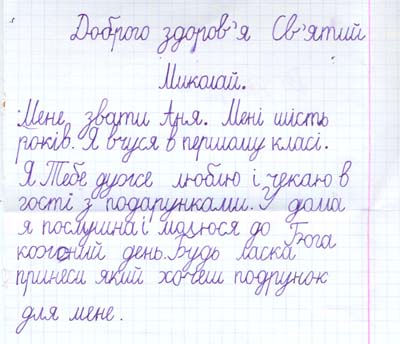 Доброго здоров'я Св'ятий
Миколай.
Мене звати Аня. Мені шість
років. Я вчуся в першому класі.
Я Тебе дуже люблю і чекаю в
гості з подарунками. У дома
я послушна і молюся до Бога
кожоний день. Будь ласка
принеси який хочеш подрунок
для мене.